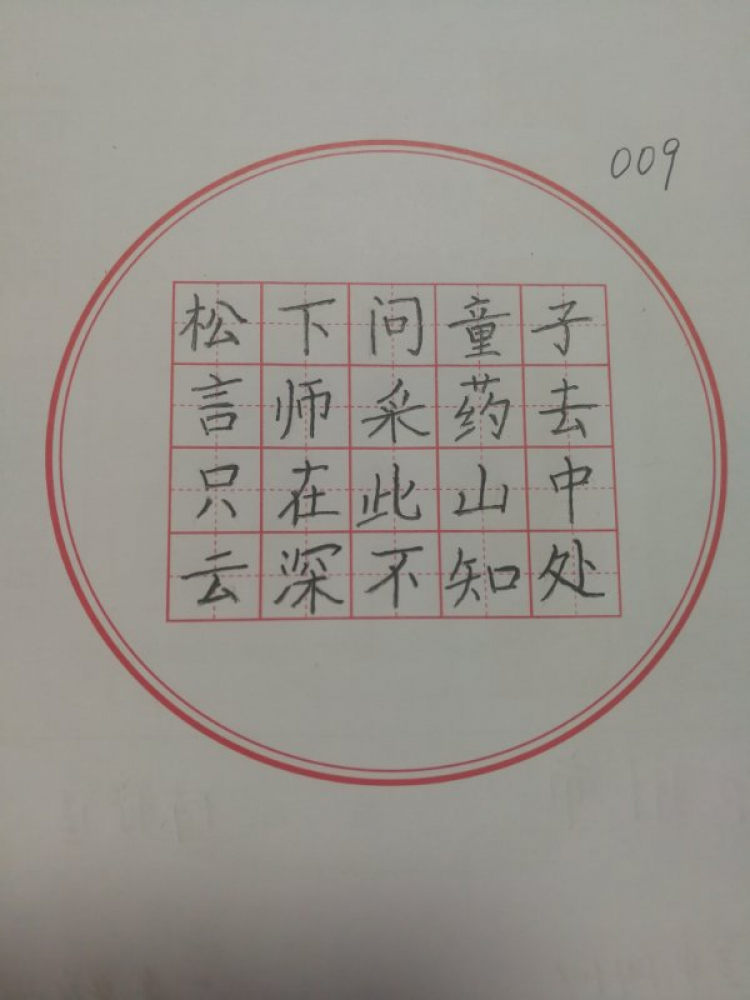 009
松下问童子
言师采药去
只在此山中
云深不知处